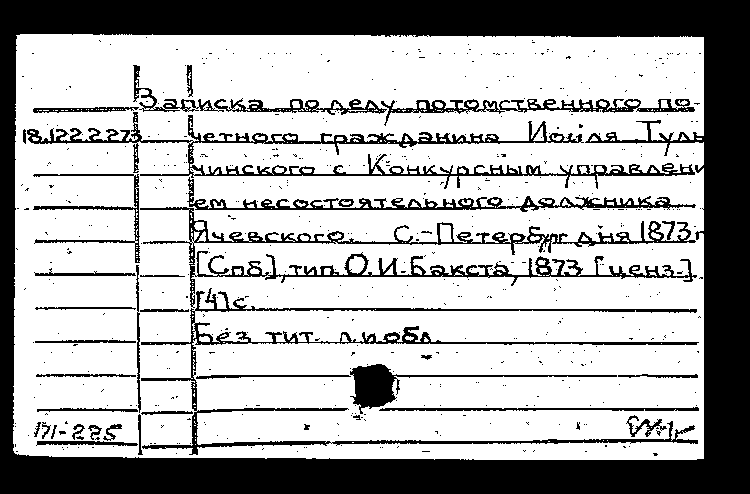 Записка по делу потомственного по-
18.122.2.273 четного гражданина Иоиля Туль
чинского с Конкурсным управлени
ем несостоятельного должника
Ячевского. С.-Петербург дня 1873 г
[Спб.], тип. О.И. Бакста, 1873 [ценз.].
[4] с.
Без тит. л. и обл.
171-225